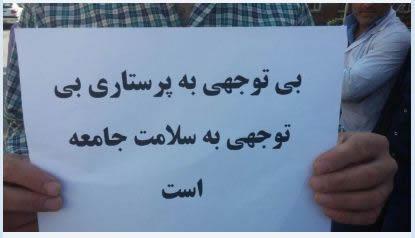 بی توجهی به پرستاری بی
توجهی به سلامت جامعه
است